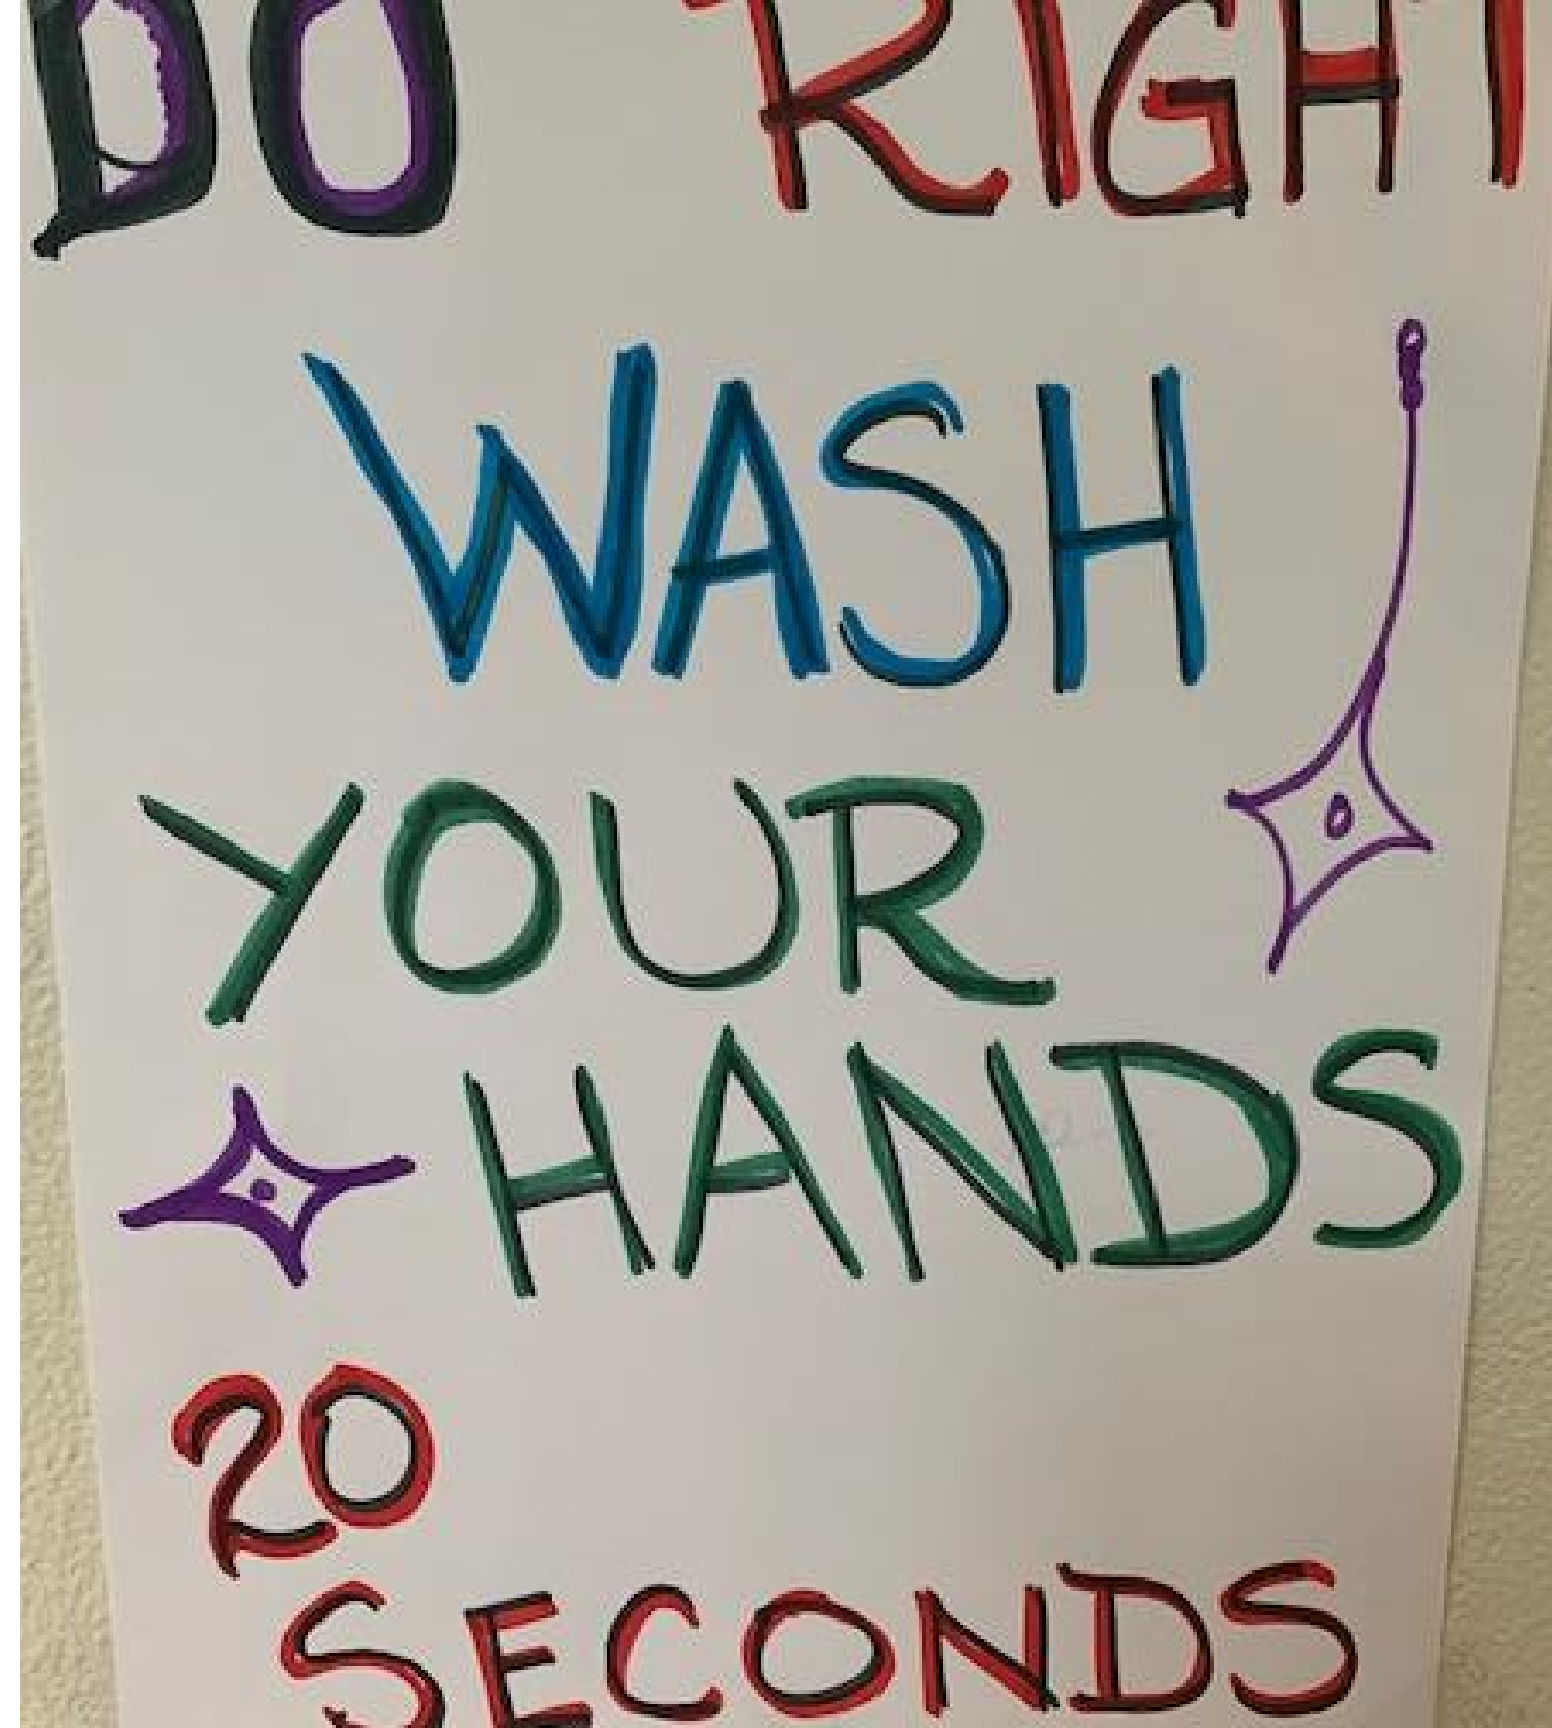 DO RIGHT
WASH
YOUR
HANDS
20
SECONDS